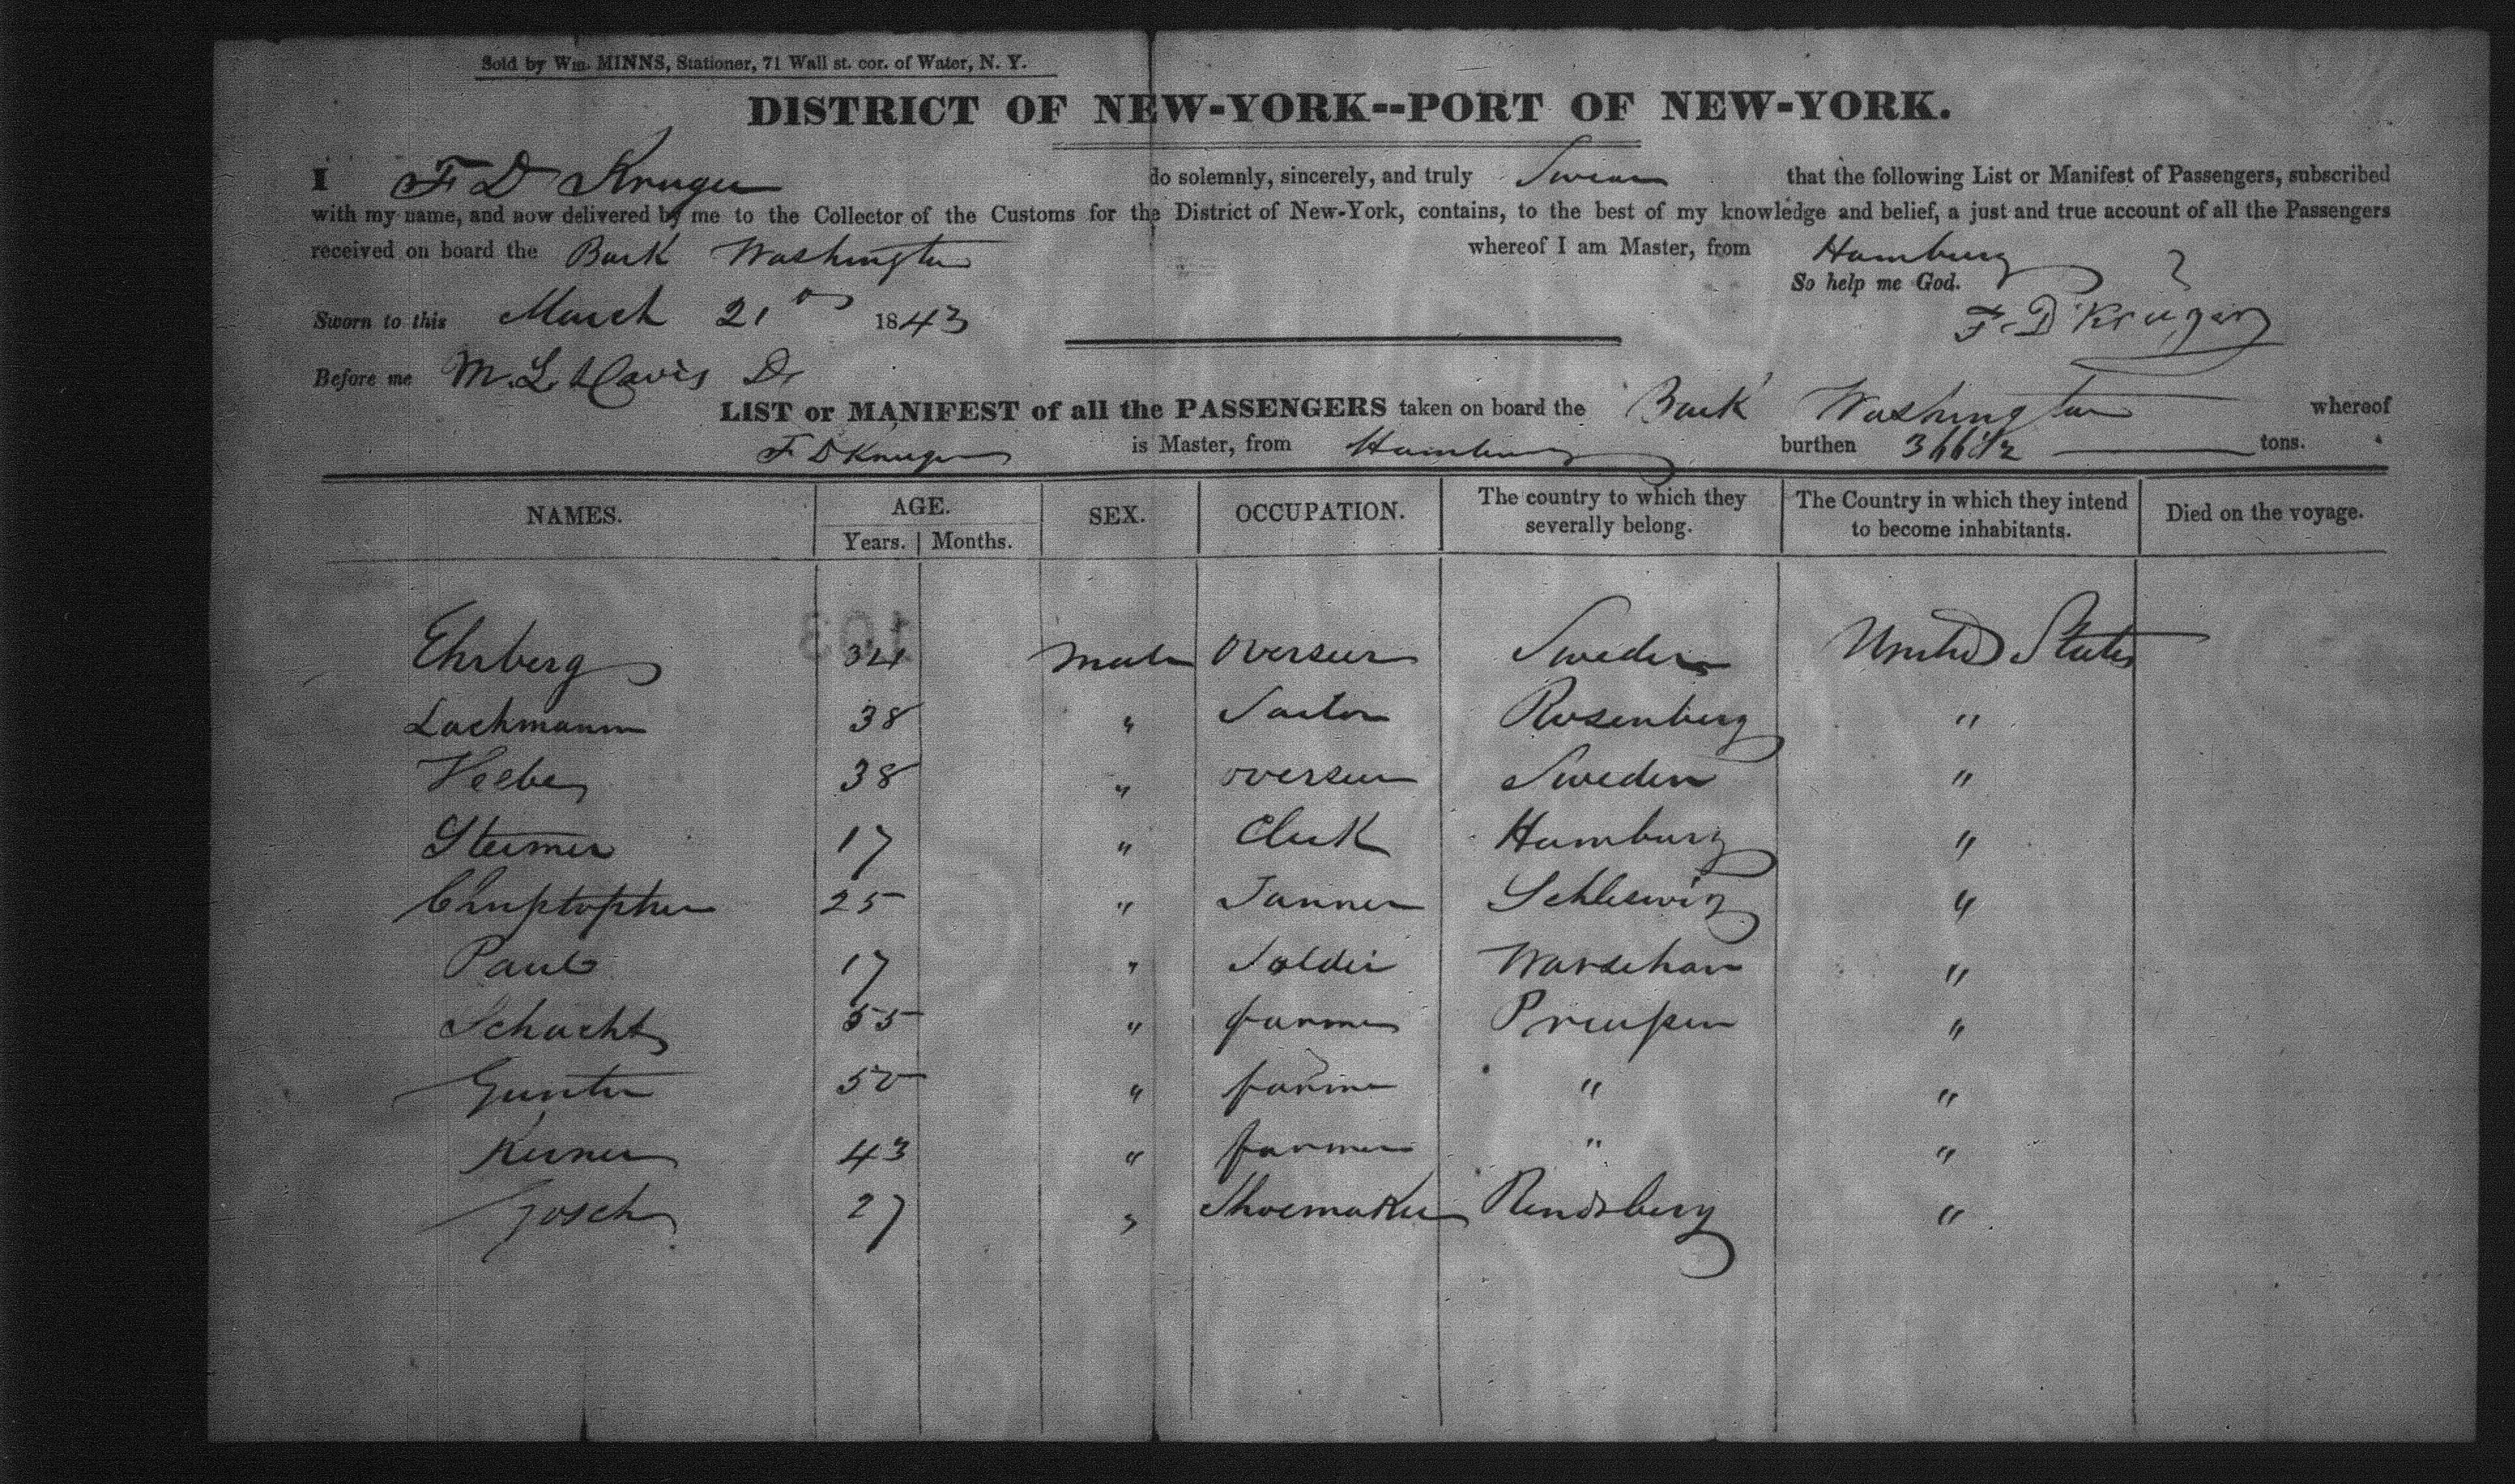 Sold by Wm. MINNS, Stationer, 71 Wall st. cor. of Water, N. Y.
DISTRICT OF NEW-YORK--PORT OF NEW-YORK.
I F D Kruger do solemnly, sincerely, and truly Swear that the following List or Manifest of Passengers, subscribed
with my name, and now delivered by me to the Collector of the Customs for the District of New-York, contains, to the best of my knowledge and belief, a just and true account of all the Passengers
received on board the Bark Washington whereof I am Master, from Hamburg
So help me God.
Sworn to this March 21 1843 F. D. Kruger
Before me M. L. Davis
LIST or MANIFEST of all the PASSENGERS taken on board the Bark Washington whereof
F D Kruger is Master, from Hamburg burthen tons.
NAMES. AGE. Years. Months. SEX. OCCUPATION. The country to which they severally belong. The Country in which they intend to become inhabitants. Died on the voyage.
103
Ehrberg 34 Male Overseer Sweden United States
Lachmann 38 " Rosenberg "
38 " overseer Sweden "
17 " Clerk Hamburg "
25 " Tanner Schleswig "
Paul 17 " Soldier Warschau "
Schacht 55 " farmer Preußen "
Gunter 50 " farmer " "
Kerner 43 " farmer " "
Gosch 27 " Shoemaker Rendsberg "